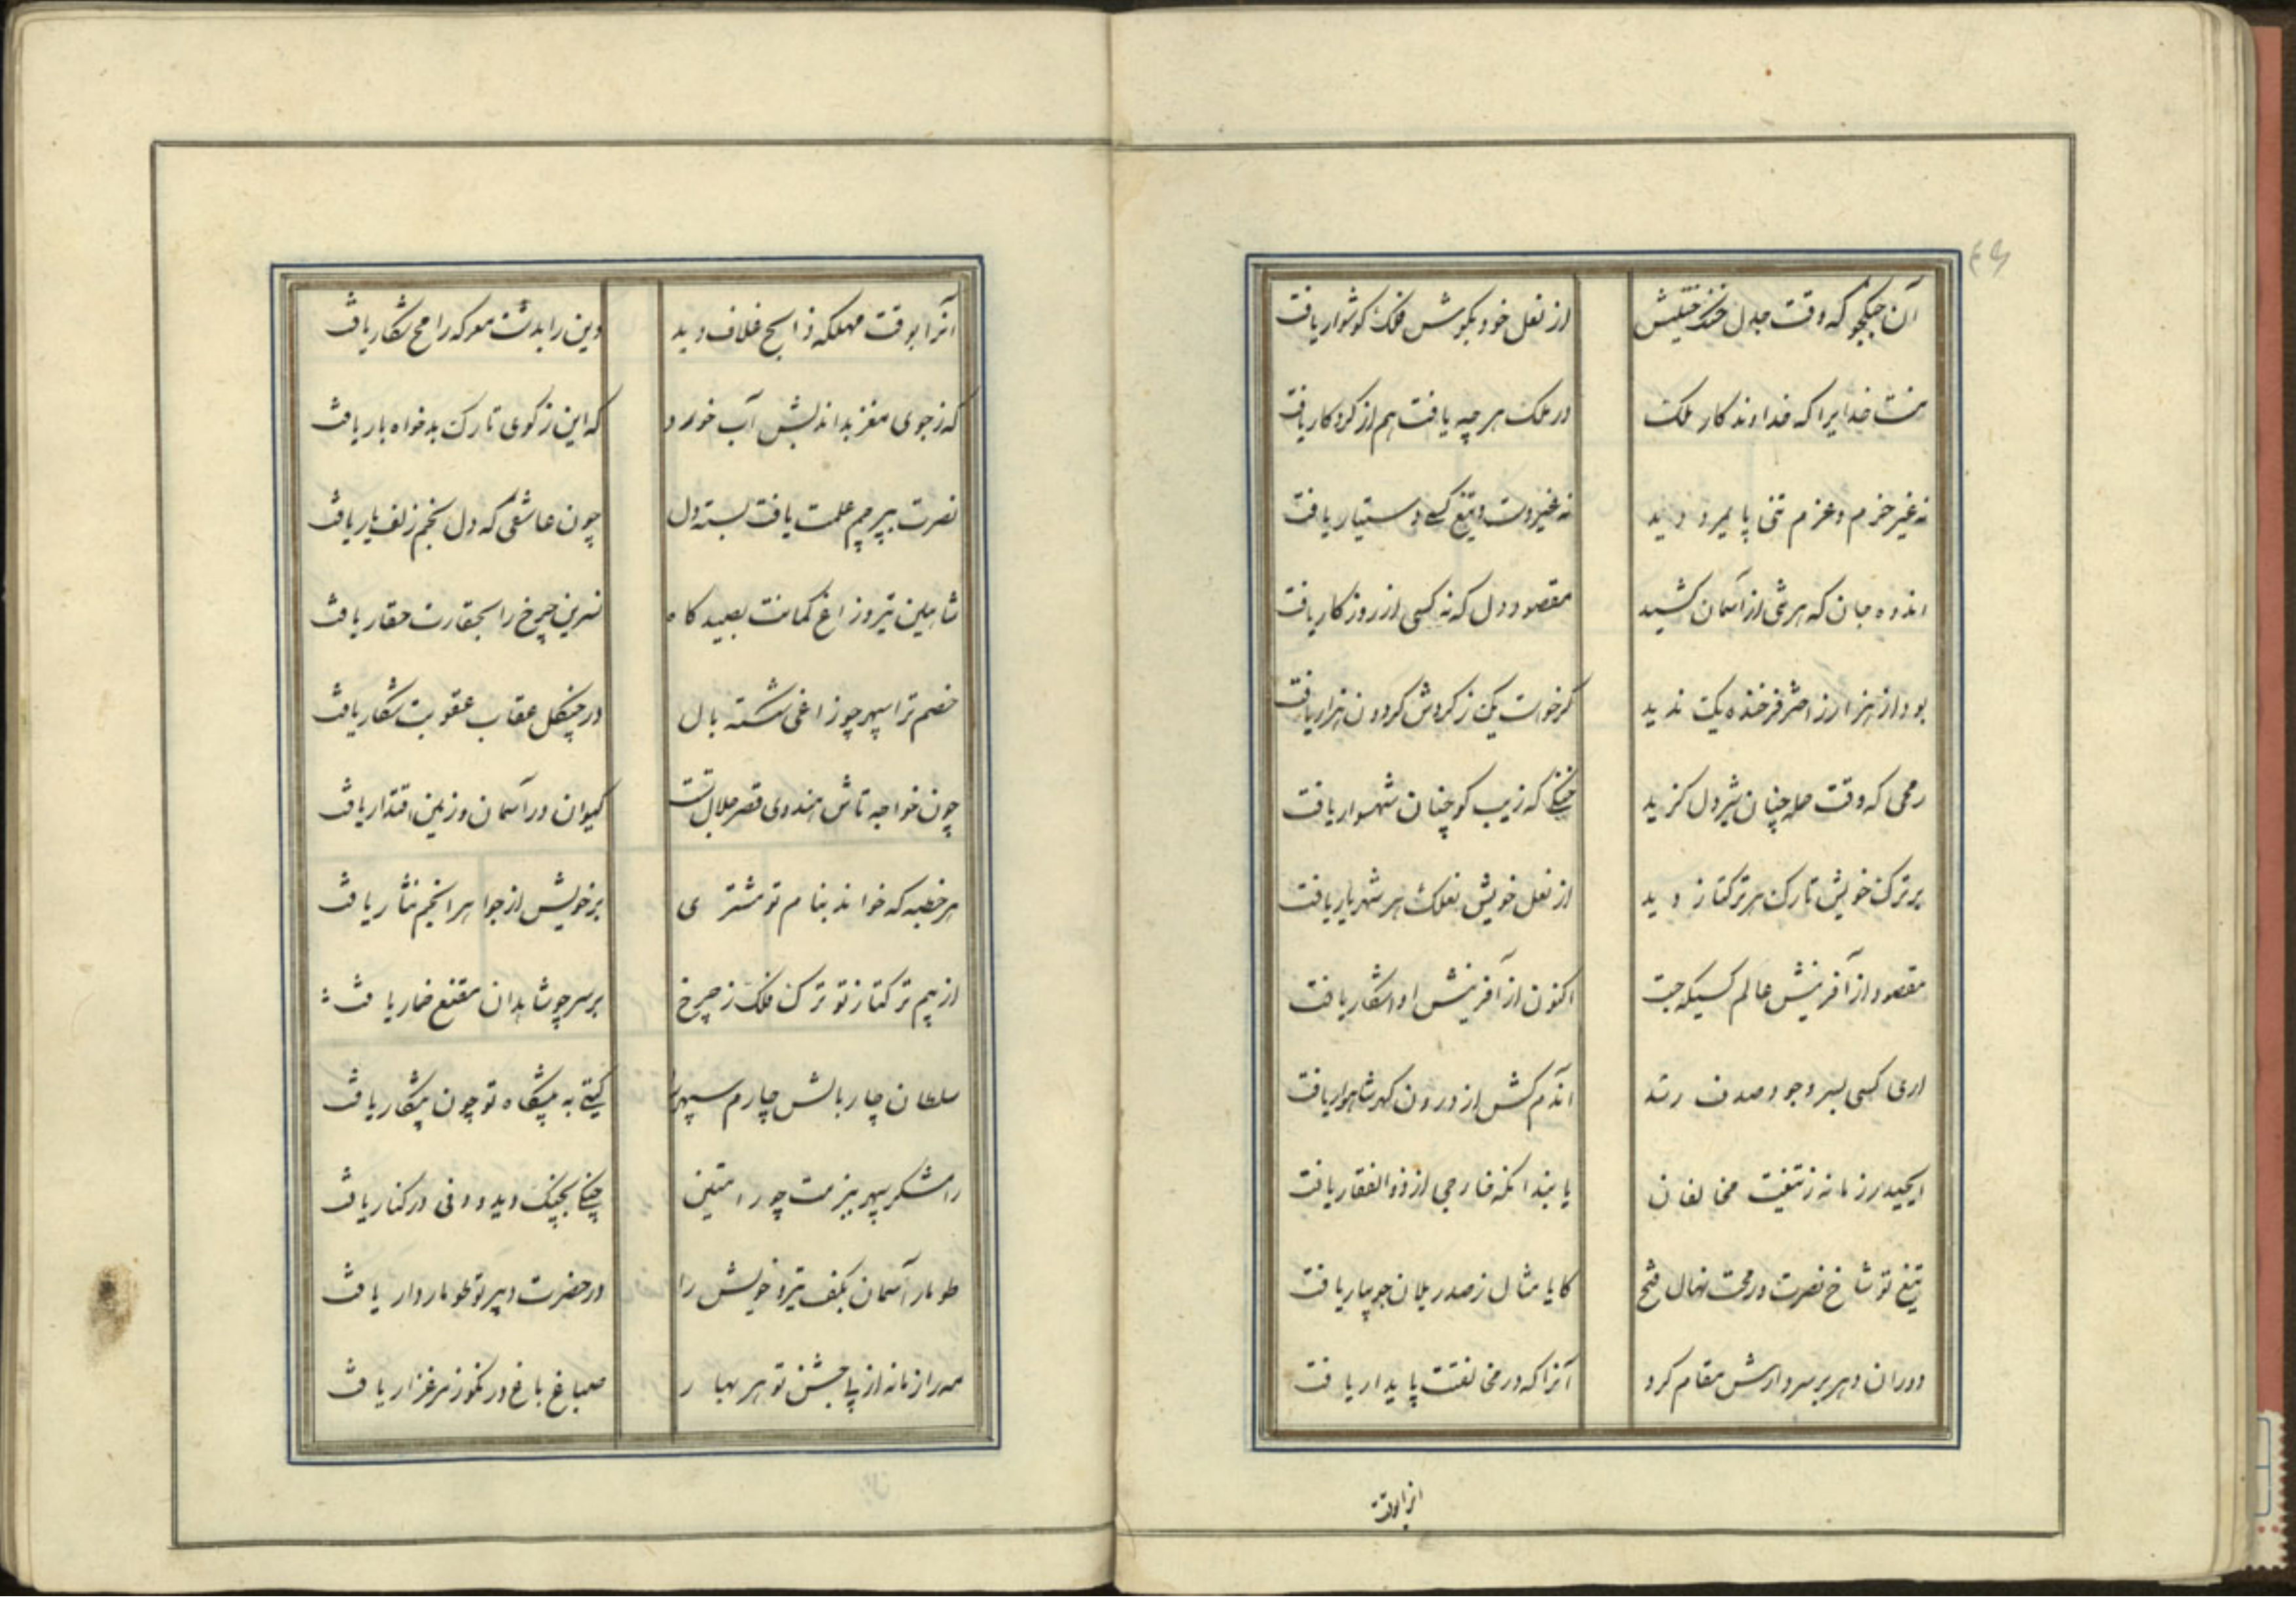 آن جنگجو که وقت جدل خنک ختلیش از نعل خود بگوش فلک گوشوار یافت
منت خدایرا که خداوندکار ملک در ملک هر چه یافت هم از کردکار یافت
نه غیر حزم و عزم تنی پایمرد دید نه غیر دست و تیغ کسی دستیار یافت
اندوه جان که هر شی از آسمان کشید مقصود دل که نه کسی از روزکار یافت
بود از هزار زاختر فرخنده یک ندید کر خواست یک ز کردش کردون هزار یافت
رمحی که وقت حمله چنان شیردل کزید خنکی که زیب کو چنان شهسوار یافت
بر ترک خویش تارک هر ترکتاز دید از نعل خویش تعلک هر شهریار یافت
مقصود از آفرینش عالم کسیکه جست اکنون از آفرینش او اشکار یافت
اری کسی بسر وجود صدف رسد آندم کش از درون کهر شاهوار یافت
زمانه ز تیغت مخالفان یابند انکه خارجی از ذوالفقار یافت
تیغ تو شاخ نصرت و رمحت نهال فتح کایا مثال ز صدر یلان جویبار یافت
دوران دهر بر سر دارش مقام کرد آنرا که در مخالفتت پایدار یافت
انرا بوقت
آنرا بوقت مهلکه ذابح غلاف دید وین را بدشت معرکه رامح شکار یافت
که ز جوی مغز بداندیش آب خورد که این ز کوی تارک بدخواه بار یافت
نصرت بپرچم علمت یافت بسته دل چون عاشقی که دل بخم زلف یار یافت
شاهین تیر و زاغ کمانت بصیدکاه نسرین چرخ را بحقارت حقار یافت
خصم ترا سپهر چو زاغی شکسته بال در چنکل عقاب عقوبت شکار یافت
چون خواجه تاش هندوی قصر جلال تست کیوان در آسمان و زمین اقتدار یافت
هر خطبه که خواند بنام تو مشتری بر خویش از جواهر انجم نثار یافت
از بیم ترکتاز تو ترک فلک ز چرخ بر سر چو شاهدان مقنع خمار یافت
سلطان چار بالش چارم سپهر را کیتی به پیشگاه تو چون پیشکار یافت
رامشکر سپهر ببزمت چو رامتین چنگی بچنک دید و دفی در کنار یافت
طومار آسمان بکف تیر و خویش را در حضرت دبیر تو طومار دار یافت
مه را زمانه از پی جشن تو هر بهار صباغ باغ و رنکرز مرغزار یافت